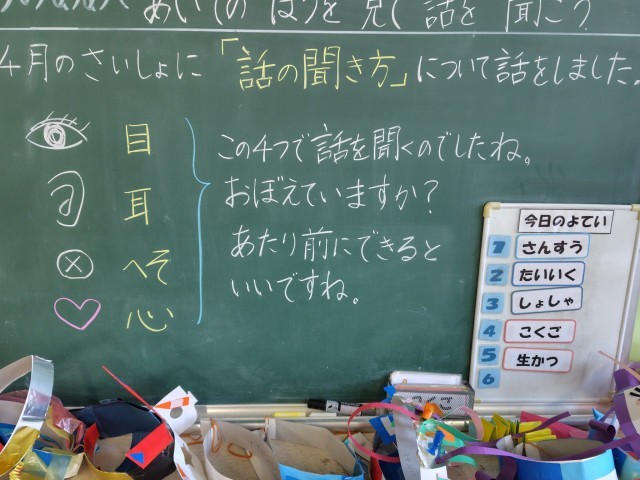 あいてのほうを見て話を聞こう
4月のさいしょに「話の聞き方」について話をしました。
目
耳
へそ
心
この4つで話を聞くのでしたね。
おぼえていますか?
あたり前にできると
いいですね。
今日のよてい
1 さんすう
2 たいいく
3 しょしゃ
4 こくご
5 生かつ
6